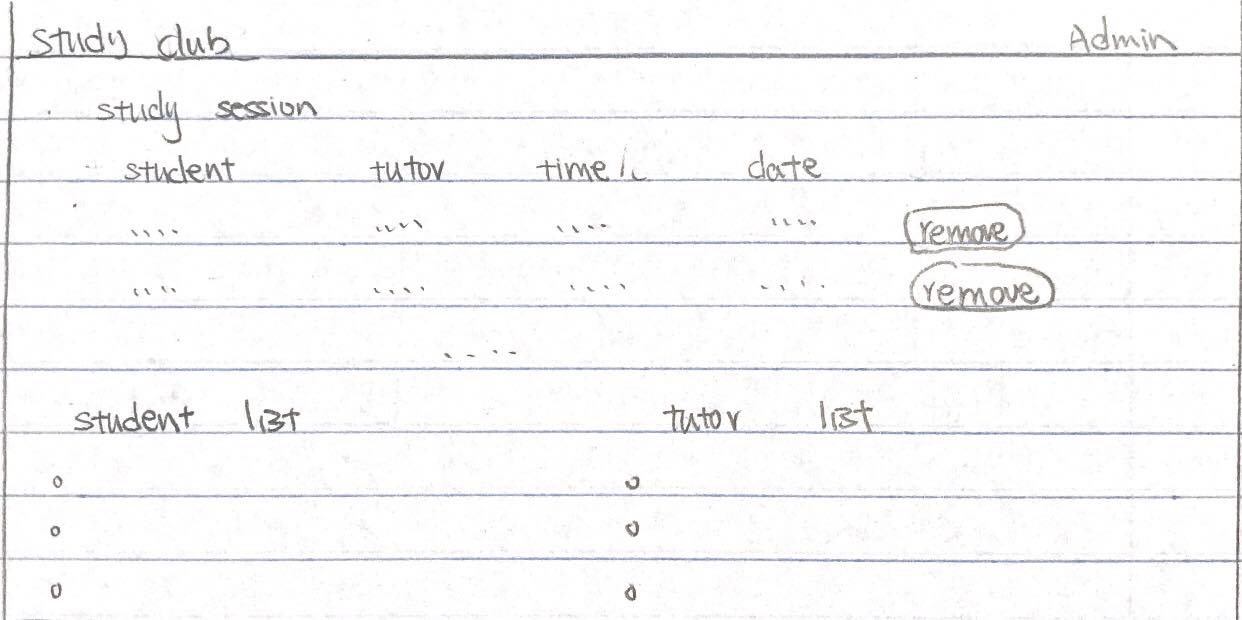 study club Admin
study session
student tutor time date
.... .... .... .... remove
.... .... .... .... remove
....
student list tutor list